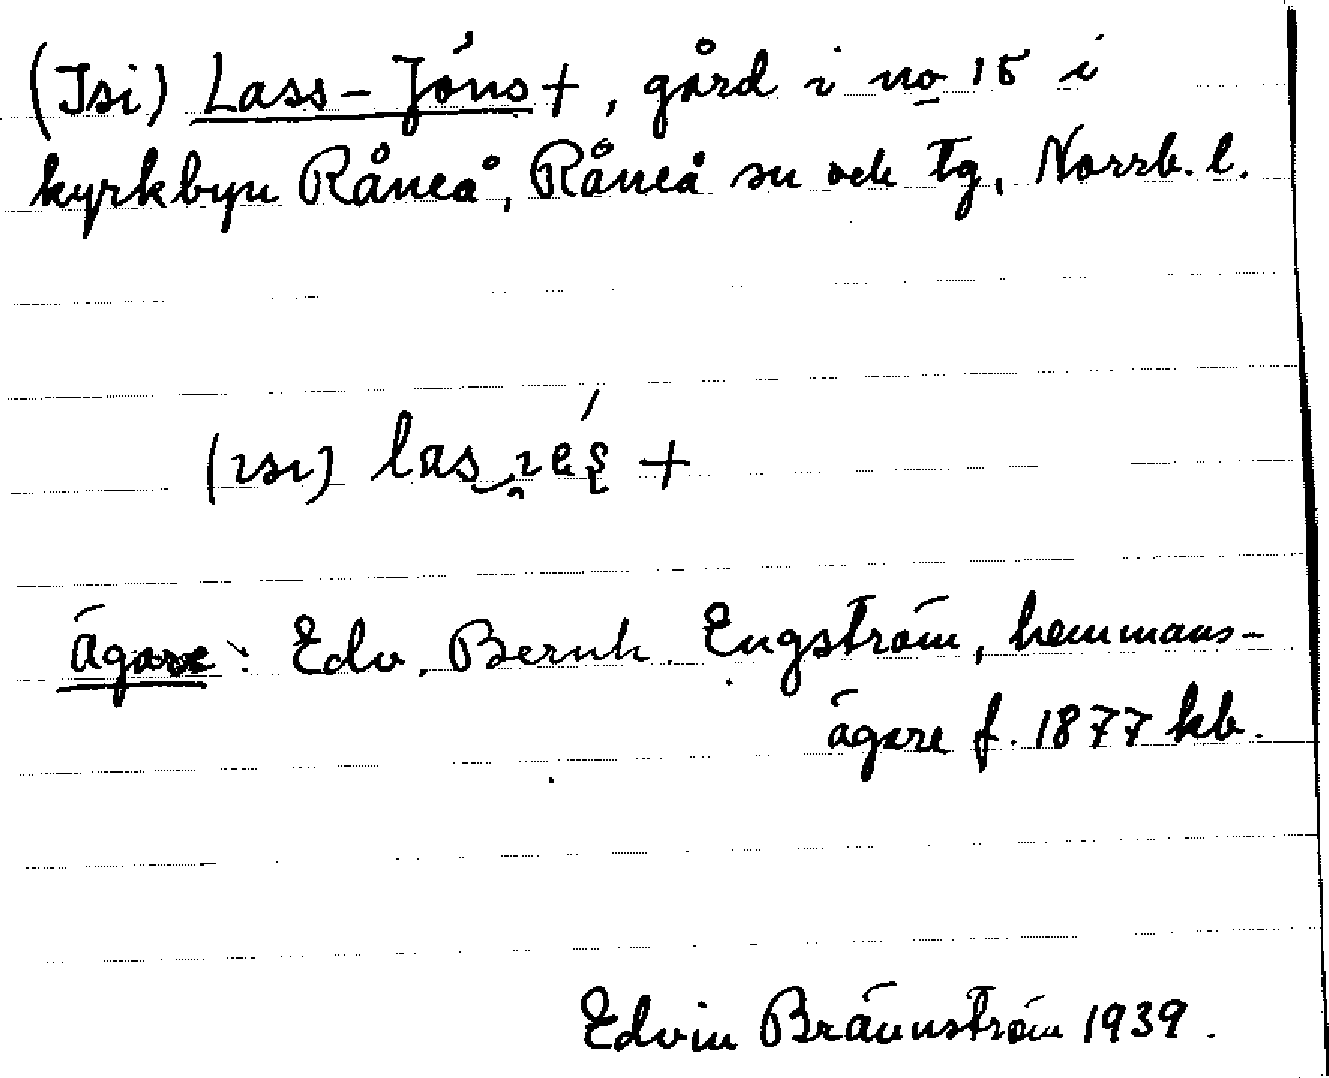 (Isi) Lass-Jóns +, gård i no 15 i
kyrkbyn Råneå, Råneå sn och tg, Norrb. l.
(ısı)
+
ägare: Edv. Bernh. Engström, hemmans-
ägare f. 1877 kb.
Edvin Brännström 1939.